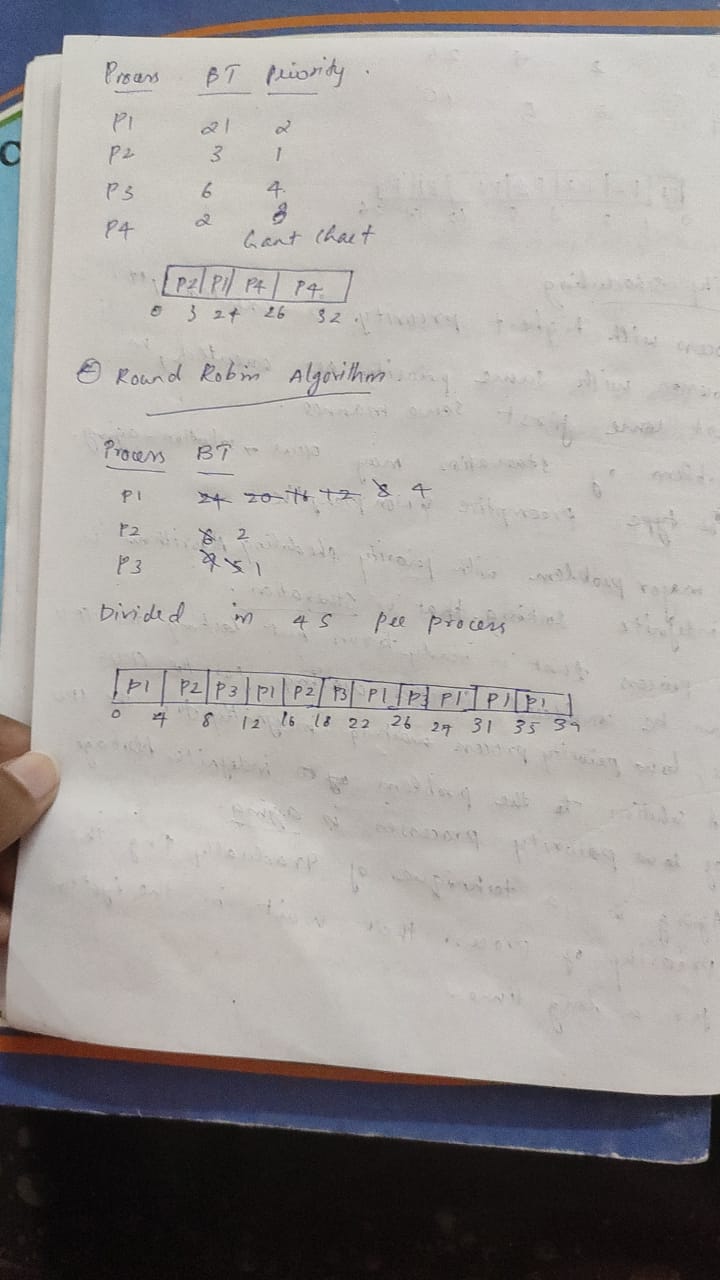 Process BT Priority.
P1 21 2
P2 3 1
P3 6 4
P4 2 3
Gant Chart
P2 P1 P4 P4
0 3 24 26 32
Round Robin Algorithm
Process BT
P1 24 20 16 12 8 4
P2 6 2
P3 9 5 1
Divided in 4 S per process
P1 P2 P3 P1 P2 P3 P1 P3 P1 P1 P1
0 4 8 12 16 18 22 26 27 31 35 39